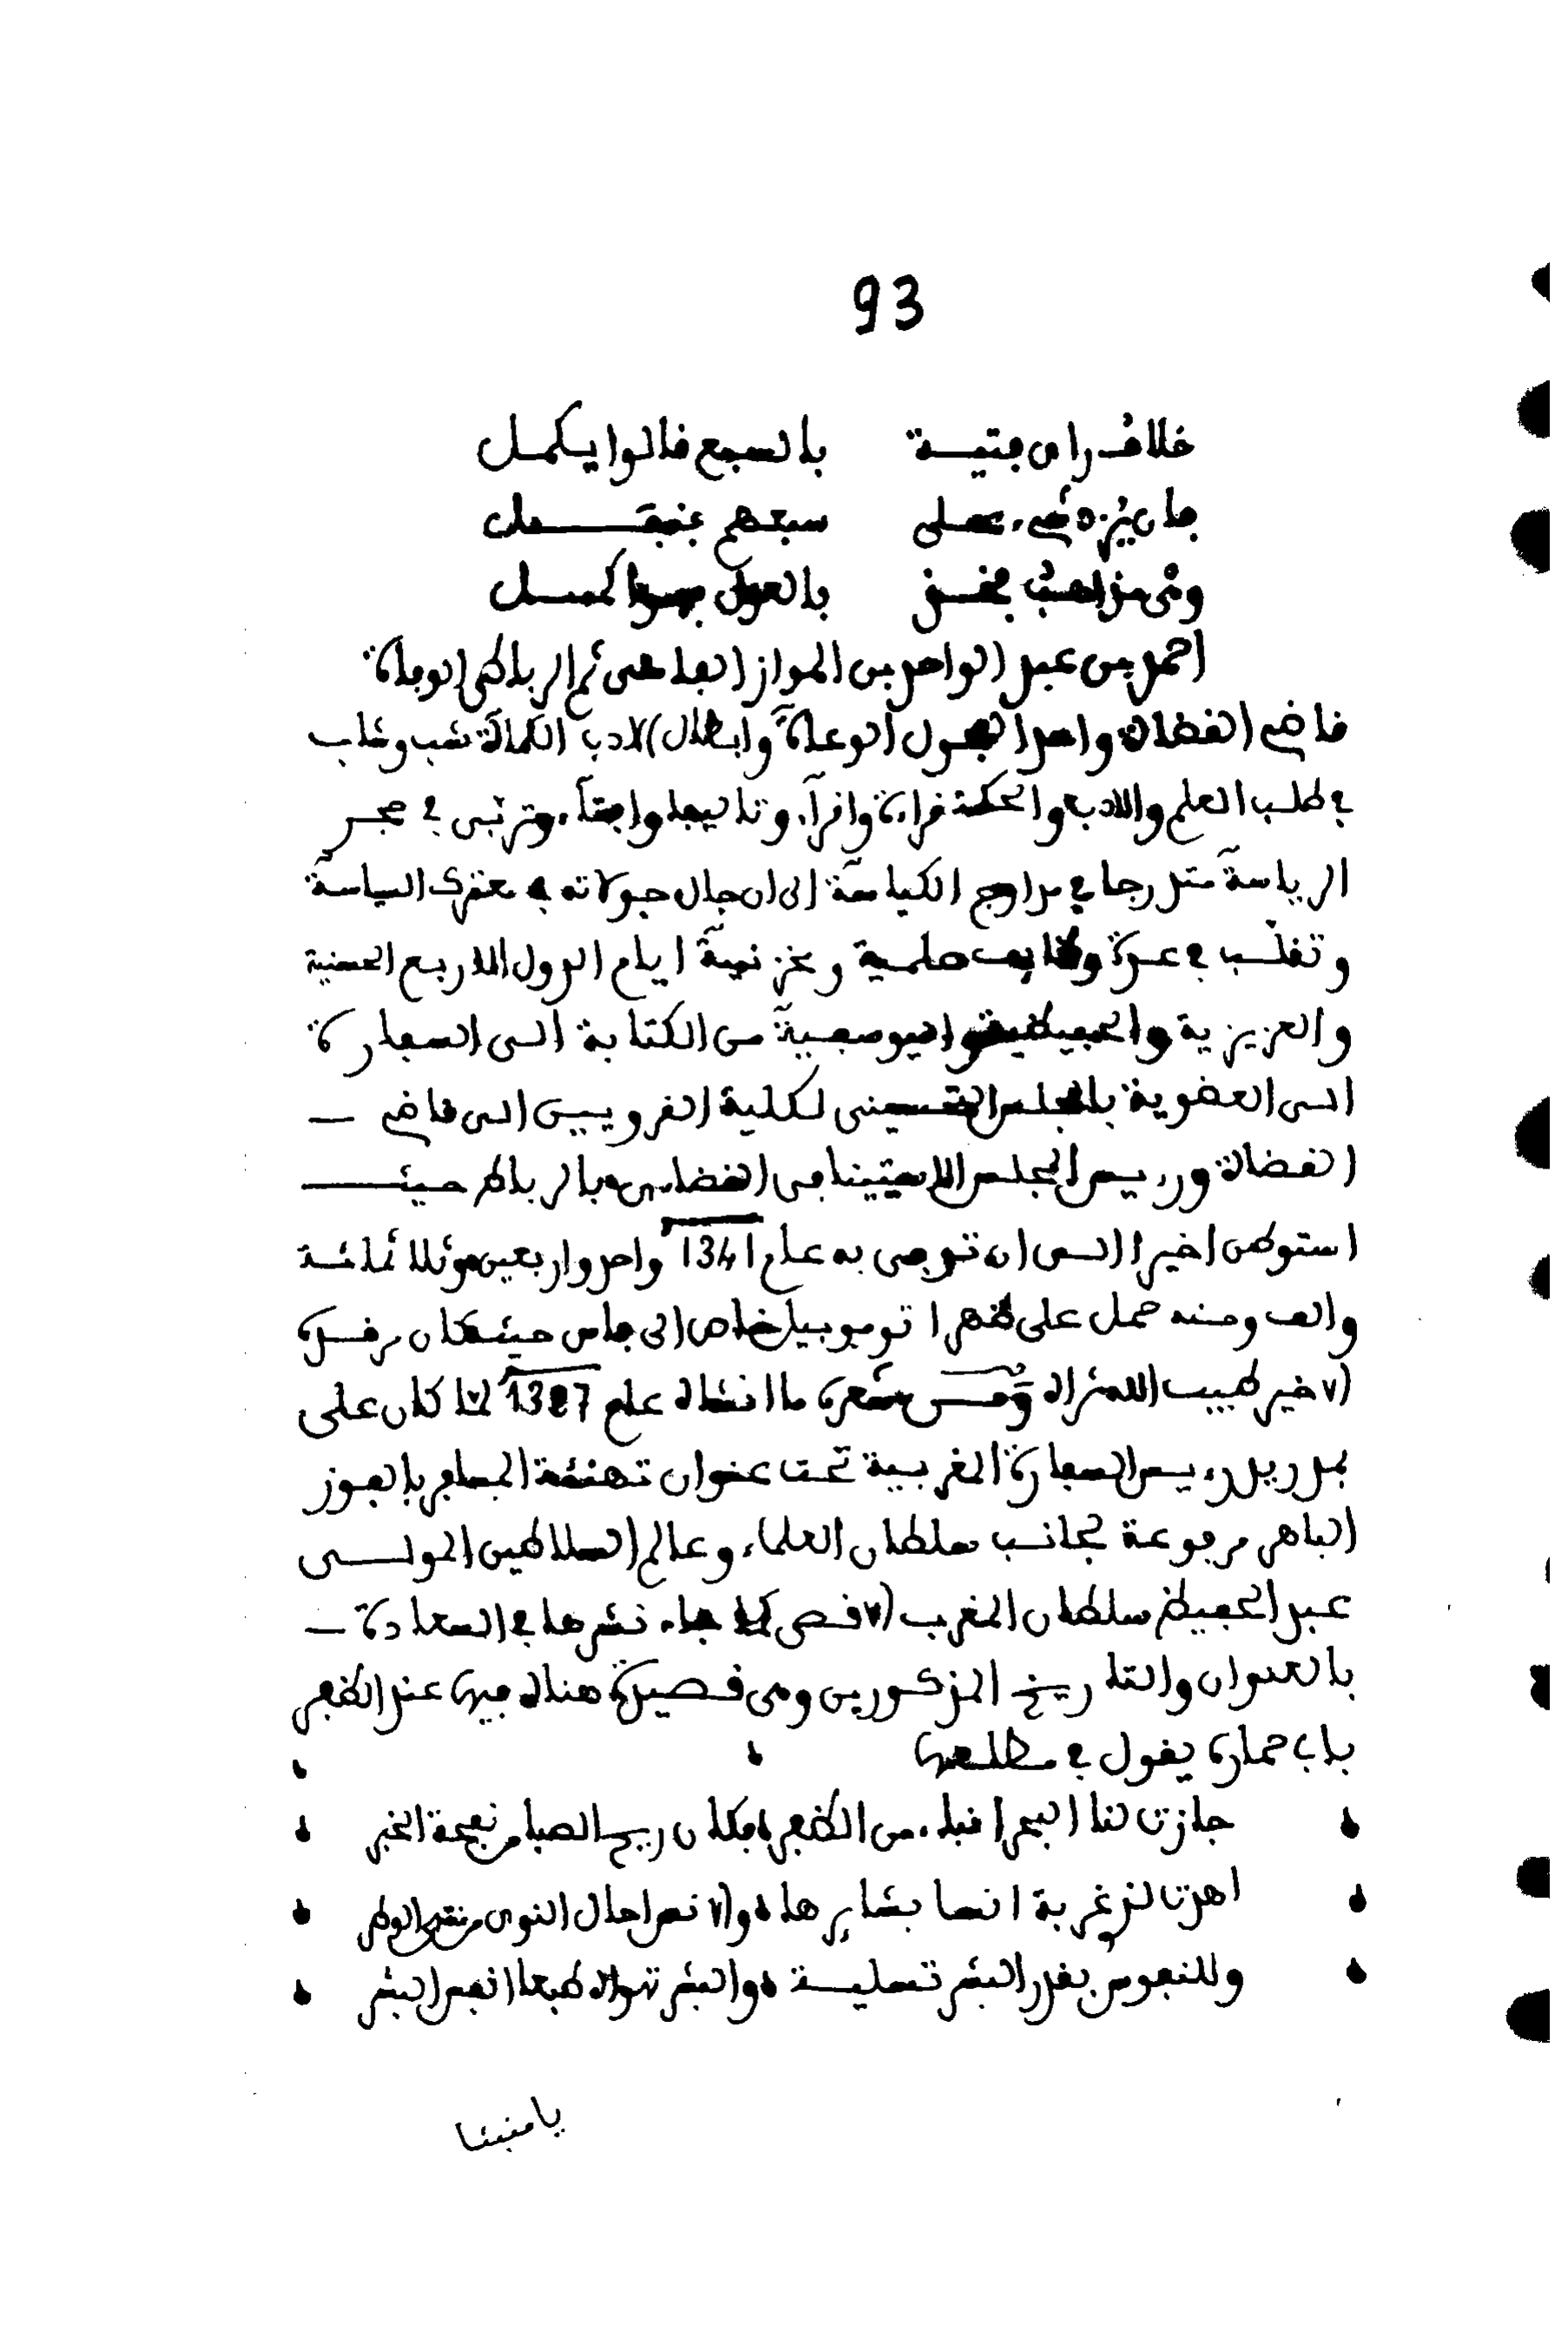 93
خلاف رأي فتية بالسبع قالوا يكمل
فان يزد شيء على سبعهم
ومن مذاهب بالعول
احمد بن عبد الواحد بن المواز الفاسي ثم الرباطي الوفاة
قاضي القضاة واحد الفحول الوعاة وابطال الادب الكماة شب وشاب
في طلب العلم والادب والحكمة قراءة واقرآء وتاليفا وافتآء وتربى في حجر
الرياسة متدرجا في مدارج الكياسة الى ان جال جولاته في معترك السياسة
وتقلب في عدة وظايف علمية ومخزنية ايام الدول الاربع الحسنية
والعزيزية والحفيظية واليوسفية من الكتابة الى السفارة
الى العضوية بالمجلس التحسيني لكلية القرويين الى قاضي —
القضاة ورييس المجلس الاستينافي القضاءي بالرباط حيث
استوطن اخيرا الى ان توفي به عام 1341 واحد واربعين وثلاثمائة
والف ومنه حمل على ظهر اتوموبيل خاص الى فاس حيث كان مرقده
الاخير طيب الله ثراه ومن شعره ما انشاه عام 1327 لما كان على
بمدريد رءيس السفارة المغربية تحت عنوان تهنئة المسافر بالفوز
الباهر مرفوعة لجانب سلطان العلماء وعالم السلاطين المولى
عبد الحفيظ سلطان المغرب الاقصى كما جاء نشرها في السعادة —
بالعنوان والتاريخ المذكورين وهي قصيدة هناه فيها عند الظفر
بابي حمارة يقول في مطلعها
جازت لنا البحر انباء من الظفر فكان ريح الصبا من نفحة الخبر
اهدت لذي غربة انسا بشايرها والانس احال النوى من منتهى الوطر
وللنفوس بقدر البشر تسلية والبشر تهواه طبعا انفس البشر
يا منبئا